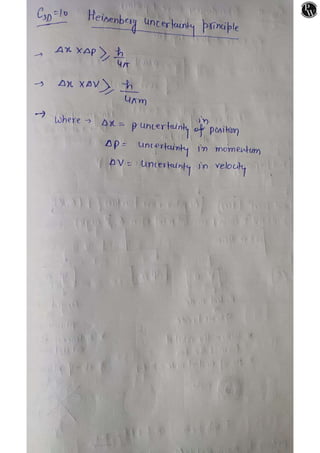 C3D=10 Heisenberg uncertainty principle
PW
→ Δx × Δp ≥ ħ/4π
→ Δx × ΔV ≥ ħ/4πm
→ Where → Δx = p uncertainty of in position
Δp = uncertainty in momentum
ΔV = uncertainty in velocity